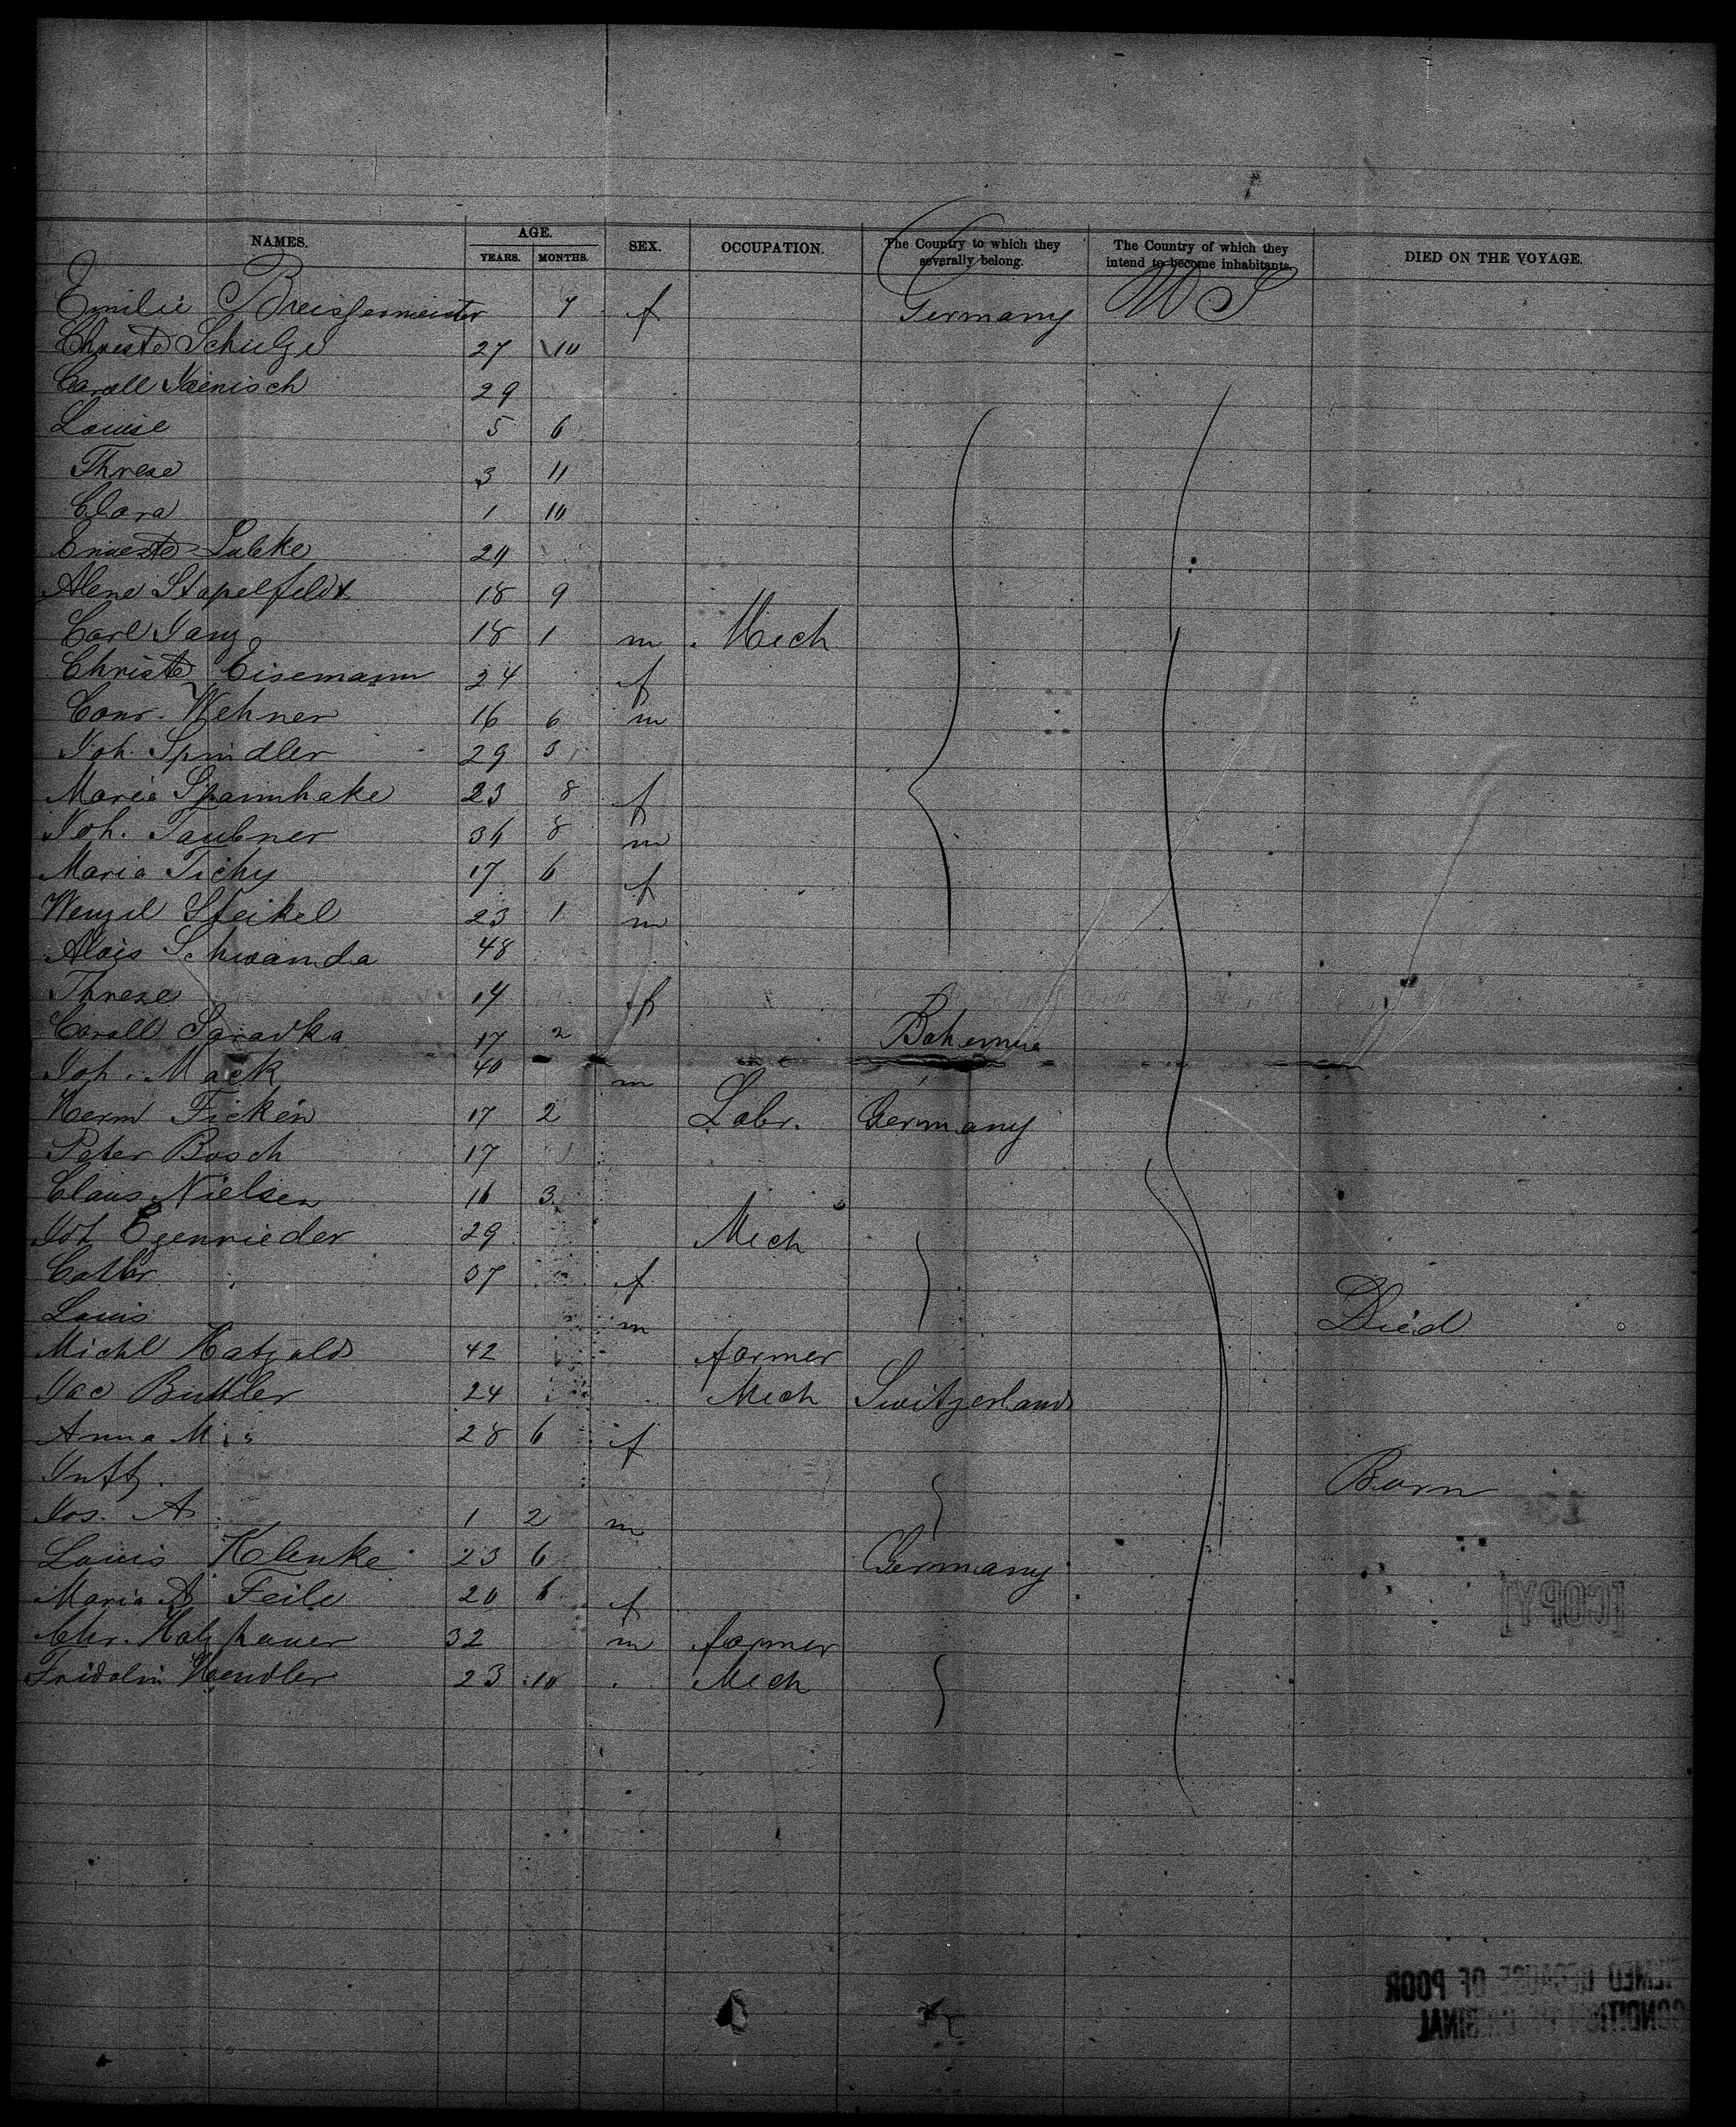 NAMES. AGE. SEX. OCCUPATION. The Country to which they severally belong. The Country of which they intend to become inhabitants. DIED ON THE VOYAGE.
YEARS. MONTHS.
Emilie 7 f Germany U S
Christe Schulze 27 10
Caroll Jaenisch 29
Louise 5 6
Threse 3 11
Clara 1 10
Lubke
Alene Stapelfeldt 18 9
Carl 18 1 m Mech
Christe Eisemann 24 f
Conr. Wehner 16 6 m
Joh. Spindler 29 5
Maria Spannhake 23 8 f
Joh. Taubner 36 8 m
Maria Tichy 17 6 f
Wenzel Steikel 23 1 m
Alois Schwanda 48
Threse 14 f
Caroll 17 2 Bohemia
Joh. Mack 40 m
Herm Ficken 17 2 Labr. Germany
Peter Bosch 17
Claus Nielsen 16 3
Egenrieder 29 Mech
Cathr 37 f
Louis m Died
Michl Hatzold 42 farmer
Jac Buttler 24 Mech Switzerland
Anna M 28 6 f
Inft Born
Jos. A 1 2 m
Louis Klenke 23 6 Germany
Maria A Feile 20 6 f
Chr. Holzhauer 32 m farmer
Fridolin Kendler 23 10 Mech
[COPY]
BECAUSE OF POOR
CONDITION OF ORIGINAL